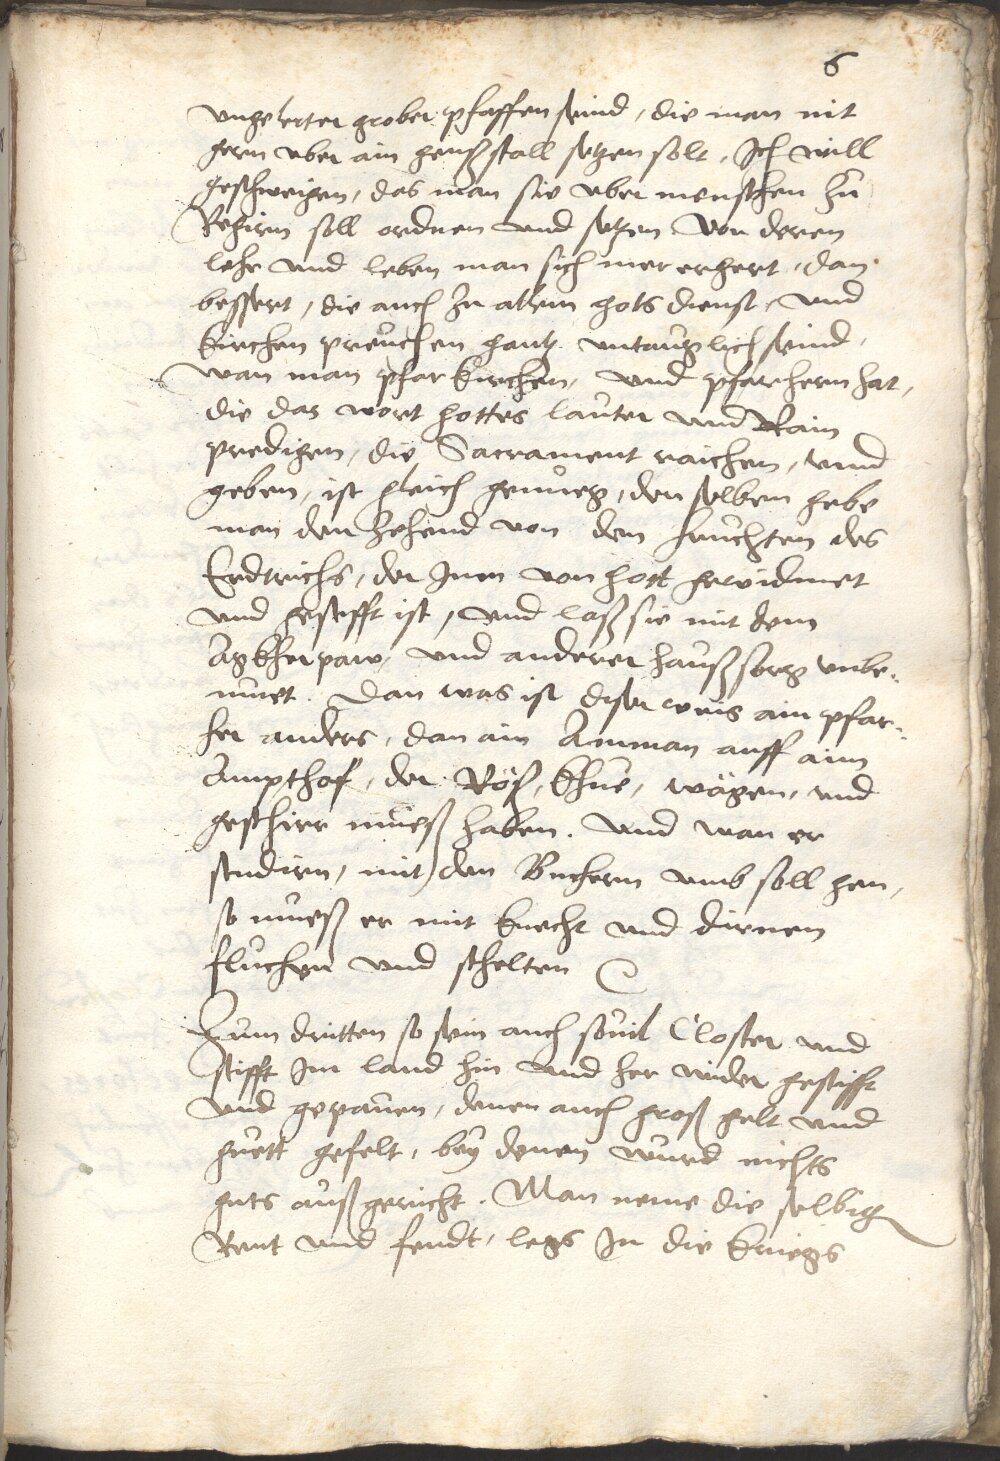 6
ungelerter grober pfaffen seind, die man nit
gern uber ain genßstall setzen solt, Ich will
geschweigen, das man sie uber menschen zu
Regirn soll ordnen und setzen. Von deren
lehr und leben man sich mer ergert, dan
bessert, die auch zu allem gots dienst, und
kirchen preuchen gantz untauglich seind,
wan man pfarkirchen, und pfarhern hat,
die das wort gottes lauter und Rain
predigen, die Sacrament raichen, und
geben, ist gleich genueg, den selben gebe
man den zehend von den fruchten des
Erdtrichs, der Inen von gott gewidmet
und gestifft ist, und laß sie mit dem
Agkherpaw, und anderer haußsorg unbe-
muet. Dan was ist diser weis ain pfar-
her anders, dan ain Amman auff aim
Ampthof, der Röß, khue, wägen, und
geschirr mueß haben. und wan er
studirn, mit den Buchern umb soll gen,
so mueß er mit knecht und dirnen
fluchen und schelten
Zum dritten so sein auch sovil Closter und
stifft Im land hin und her wider gestifft
und gepauen, denen auch groß gelt und
guett gefelt, bey denen wurd nichts
guts außgericht. Man neme die selbig
Rent und fendt, legs In die kriegs